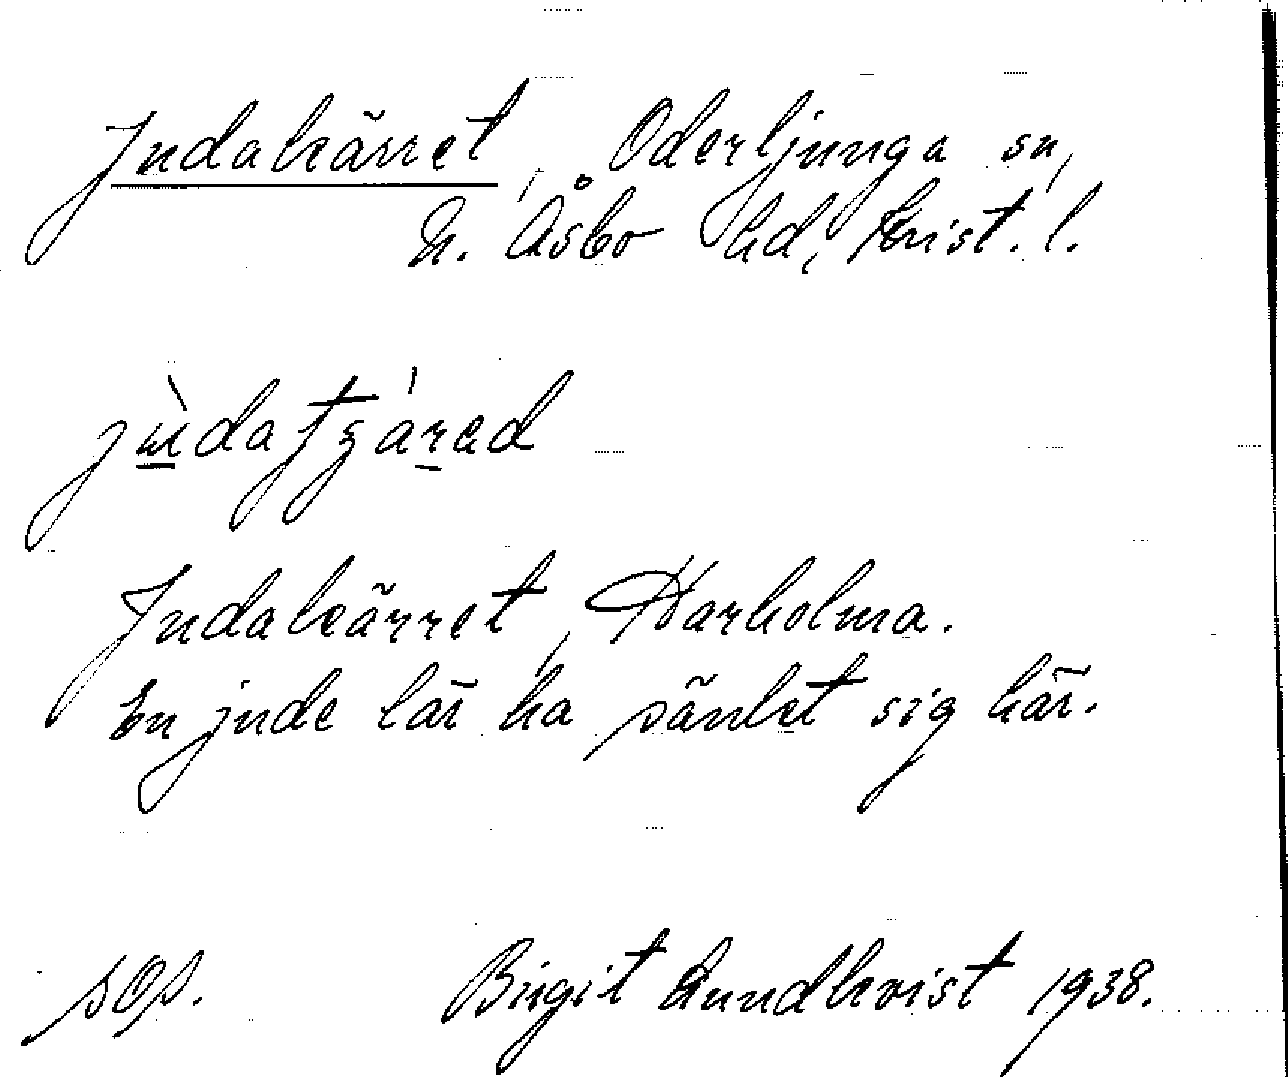 Judakärret, Oderljunga sn,
N. Åsbo hd, Krist. l.
Judakärret, Varholma.
En jude lär ha sänkt sig här.
sos.
Birgit Lundkvist 1938.